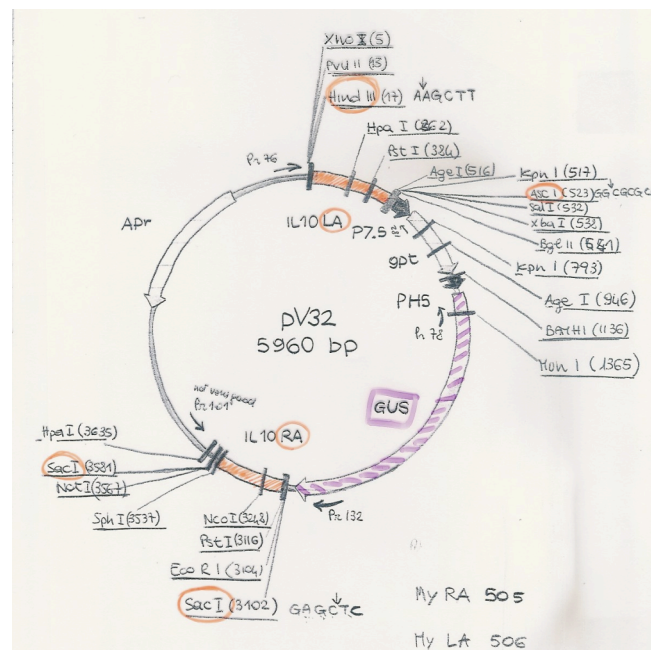 Xho I (5)
Pvu II (13)
Hind III (17) AAGCTT
Hpa I (262)
Pst I (384)
Age I (516)
Kpn I (517)
Asc I (523) GGCGCGC
Sal I (532)
Xba I (538)
Bgl II (541)
Kpn I (793)
Age I (946)
BAMHI (1136)
Mun I (1365)
Pr 76
APr
IL10 LA
P7.5
gpt
PH5
Pr 78
pV32
5960 bp
GUS
not very good
Pr 101
IL10 RA
Pr 132
Hpa I (3635)
Sac I (3581)
Not I (3567)
Sph I (3537)
Nco I (3248)
Pst I (3116)
Eco R I (3104)
Sac I (3102) GAGCTC
My RA 505
My LA 506